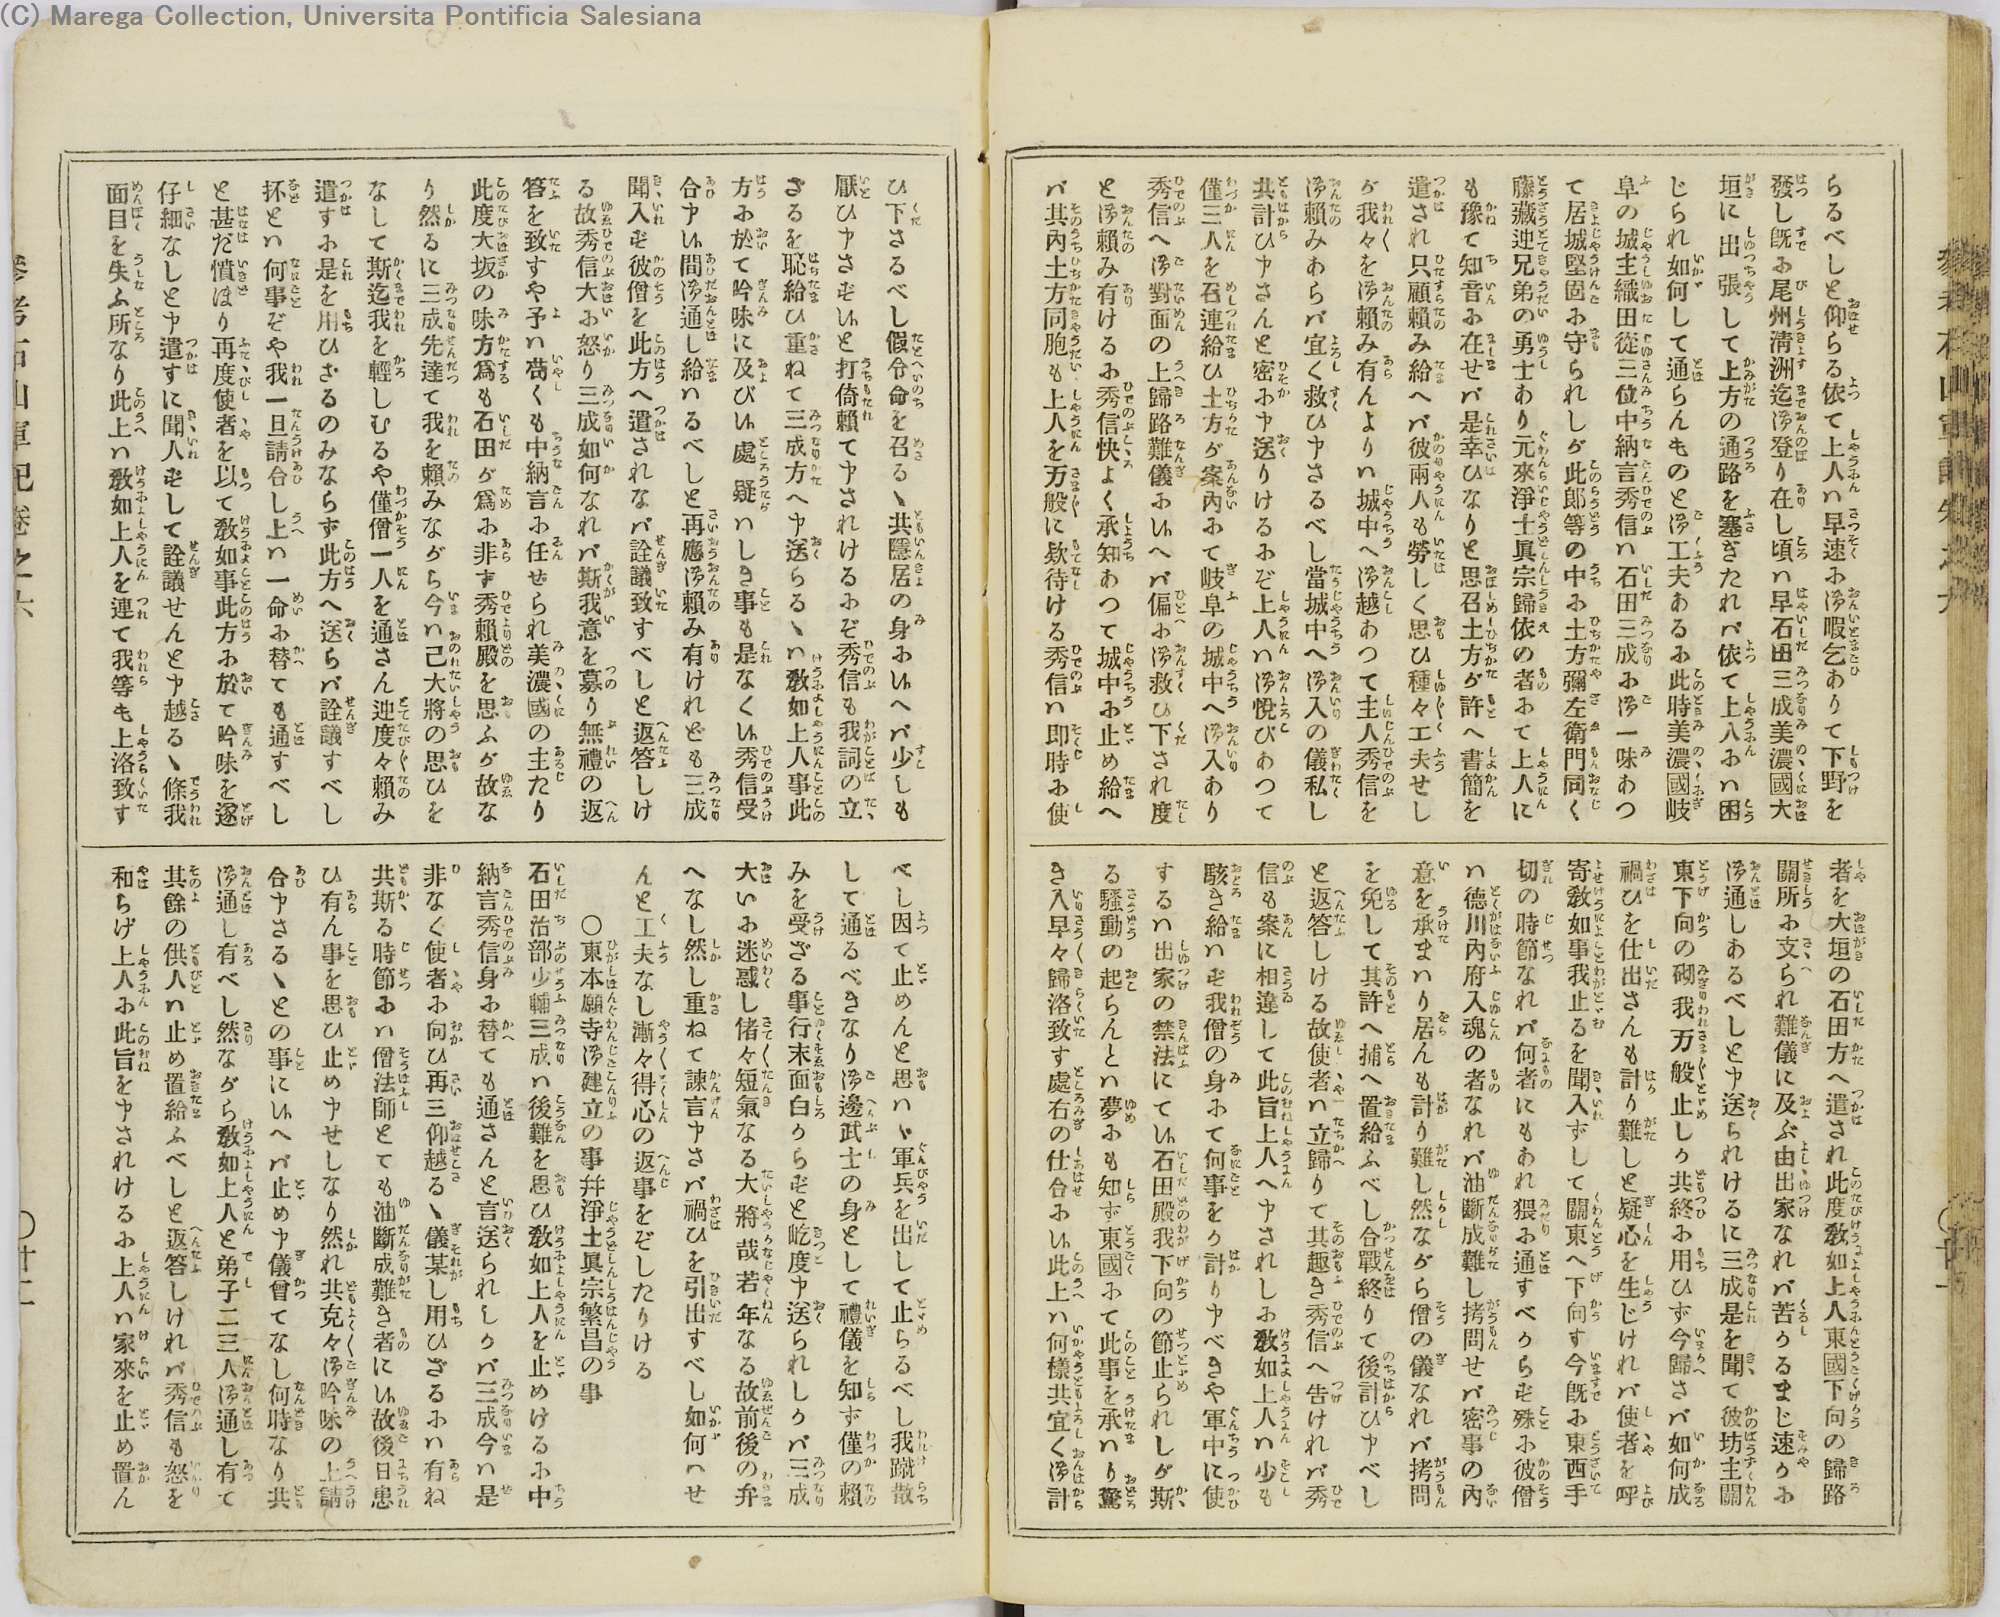 (C) Marega Collection, Universita Pontificia Salesiana
らるべしと仰らる依て上人ハ早速に御暇乞ありて下野を
發し既に尾州清洲迄御登り在し頃ハ早石田三成美濃國大
垣に出張して上方の通路を塞ぎたれバ依て上人にハ困
じられ如何して通らんものと御工夫あるに此時美濃國岐
阜の城主織田從三位中納言秀信ハ石田三成に御一味あつ
て居城堅固に守られしが此郎等の中に土方彌左衛門同く
藤藏迚兄弟の勇士あり元來淨土眞宗歸依の者にて上人に
も豫て知音に在せバ是幸ひなりと思召土方が許へ書簡を
遣され只顧頼み給へバ彼兩人も勞しく思ひ種々工夫せし
が我々を御頼み有んよりハ城中へ御越あつて主人秀信を
御頼みあらバ宜く救ひ申さるべし當城中へ御入の儀私し
共計ひ申さんと密に申送りけるにぞ上人ハ御悅びあつて
僅三人を召連給ひ土方が案內にて岐阜の城中へ御入あり
秀信へ御對面の上歸路難儀に候へバ偏に御救ひ下され度
と御頼み有けるに秀信快よく承知あつて城中に止め給へ
バ其內土方同胞も上人を万般に欵待ける秀信ハ即時に使
者を大垣の石田方へ遣され此度敎如上人東國下向の歸路
關所に支られ難儀に及ぶ由出家なれバ苦かるまじ速かに
御通しあるべしと申送られけるに三成是を聞て彼坊主關
東下向の砌我万般止しか共終に用ひず今歸さバ如何成
禍ひを仕出さんも計り難しと疑心を生じけれバ使者を呼
寄敎如事我止るを聞入ずして關東へ下向す今既に東西手
切の時節なれバ何者にもあれ猥に通すべからず殊に彼僧
ハ德川內府入魂の者なれバ油斷成難し拷問せバ密事の內
意を承まハり居んも計り難し然ながら僧の儀なれバ拷問
を免して其許へ捕へ置給ふべし合戰終りて後計ひ申べし
と返答しける故使者ハ立歸りて其趣き秀信へ告けれバ秀
信も案に相違して此旨上人へ申されしに敎如上人ハ少も
駭き給ハず我僧の身にて何事をか計り申べきや軍中に使
するハ出家の禁法にて候石田殿我下向の節止られしが斯
る騷動の起らんとハ夢にも知ず東國にて此事を承ハり驚
き入早々歸洛致す處右の仕合に候此上ハ何樣共宜く御計
ひ下さるべし假令命を召るゝ共隱居の身に候へバ少しも
厭ひ申さず候と打倚賴て申されけるにぞ秀信も我詞の立
ざるを恥給ひ重ねて三成方へ申送らるゝハ敎如上人事此
方に於て吟味に及び候處疑ハしき事も是なく候秀信受
合申候間御通し給ハるべしと再應御賴み有けれども三成
聞入ず彼僧を此方へ遣されなバ詮議致すべしと返答しけ
る故秀信大に怒り三成如何なれバ斯我意を募り無禮の返
答を致すや予ハ苟くも中納言に任せられ美濃國の主たり
此度大坂の味方爲も石田が爲に非ず秀賴殿を思ふが故な
り然るに三成先達て我を賴みながら今ハ己大將の思ひを
なして斯迄我を輕しむるや僅僧一人を通さん迚度々賴み
遣すに是を用ひざるのみならず此方へ送らバ詮議すべし
抔とハ何事ぞや我一旦請合し上ハ一命に替ても通すべし
と甚だ憤ほり再度使者を以て敎如事此方に於て吟味を遂
仔細なしと申遣すに聞入ずして詮議せんと申越るゝ條我
面目を失ふ所なり此上ハ敎如上人を連て我等も上洛致す
べし因て止めんと思ハヾ軍兵を出して止らるべし我蹴散
して通るべきなり御邊武士の身として禮儀を知ず僅の賴
みを受ざる事行末面白からずと屹度申送られしかバ三成
大いに迷惑し偖々短氣なる大將哉若年なる故前後の弁
へなし然し重ねて諫言申さバ禍ひを引出すべし如何ハせ
んと工夫なし漸々得心の返事をぞしたりける
〇東本願寺御建立の事幷淨土眞宗繁昌の事
石田治部少輔三成ハ後難を思ひ敎如上人を止めけるに中
納言秀信身に替ても通さんと言送られしかバ三成今ハ是
非なく使者に向ひ再三仰越るゝ儀某し用ひざるにハ有ね
共斯る時節にハ僧法師とても油斷成難き者に候故後日患
ひ有ん事を思ひ止め申せしなり然れ共克々御吟味の上請
合申さるゝとの事に候へバ止め申儀曾てなし何時なり共
御通し有べし然ながら敎如上人と弟子二三人御通し有て
其餘の供人ハ止め置給ふべしと返答しけれバ秀信も怒を
和らげ上人に此旨を申されけるに上人ハ家來を止め置ん
參考石山軍記卷之六
〇廿二